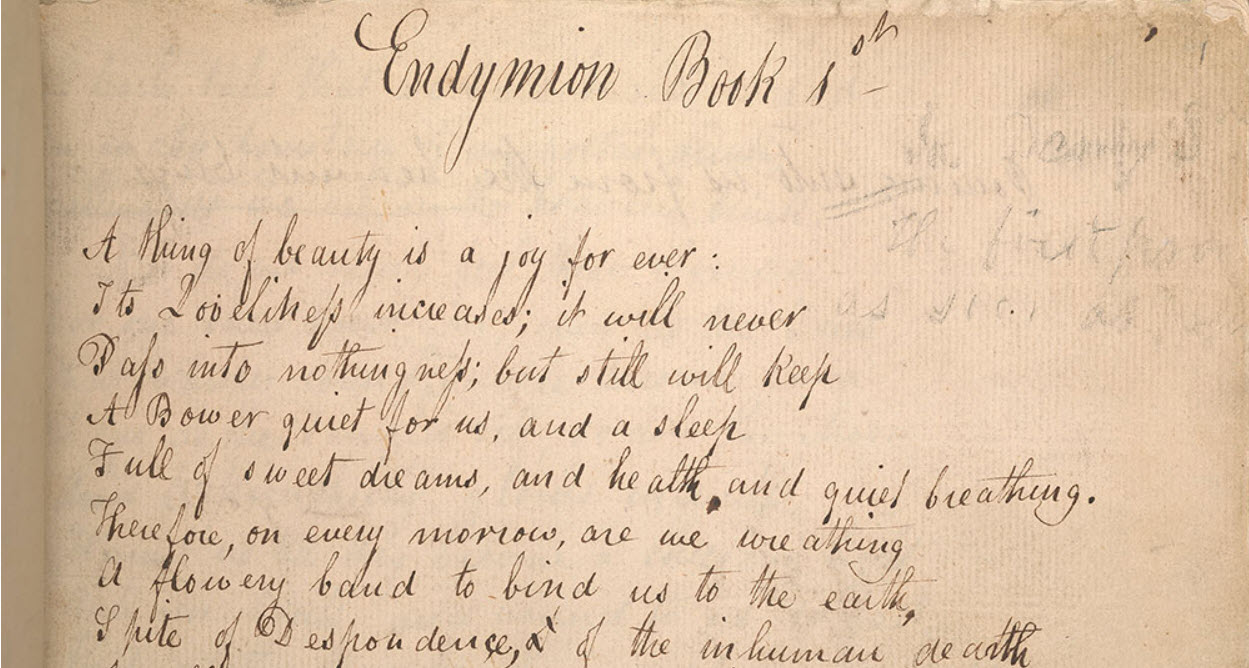 Endymion Book 1st
A thing of beauty is a joy for ever:
Its Loveliness increases; it will never
Pass into nothingness; but still will keep
A Bower quiet for us, and a sleep
Full of sweet dreams, and health, and quiet breathing.
Therefore, on every morrow, are we wreathing
A flowery band to bind us to the earth,
Spite of Despondence, & of the inhuman dearth